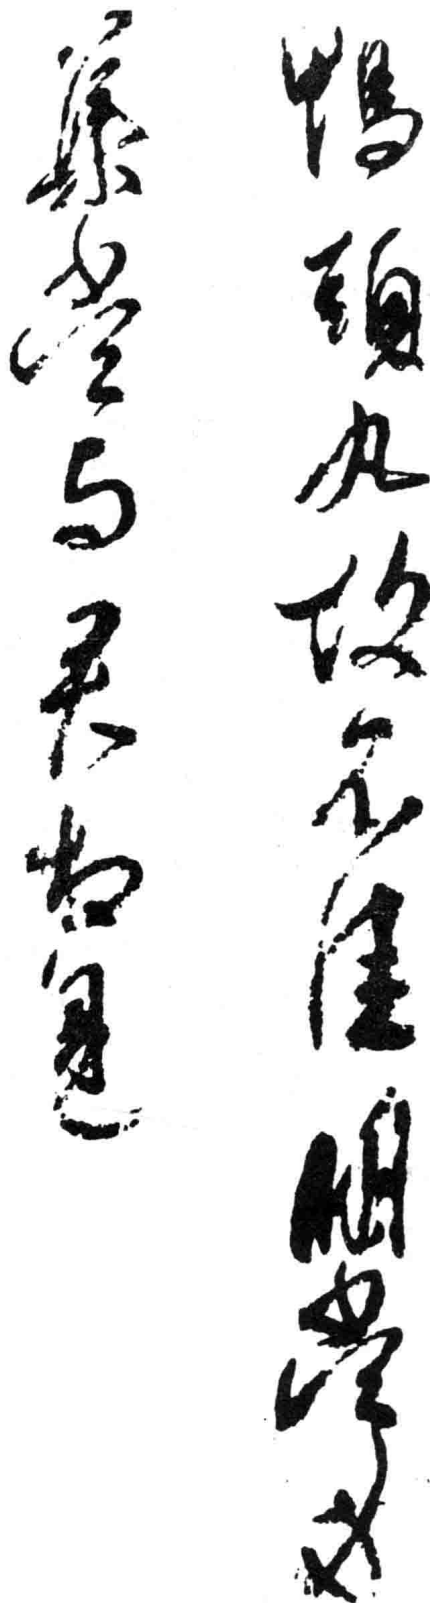 鴨頭丸故不佳明當必
集當與君相見